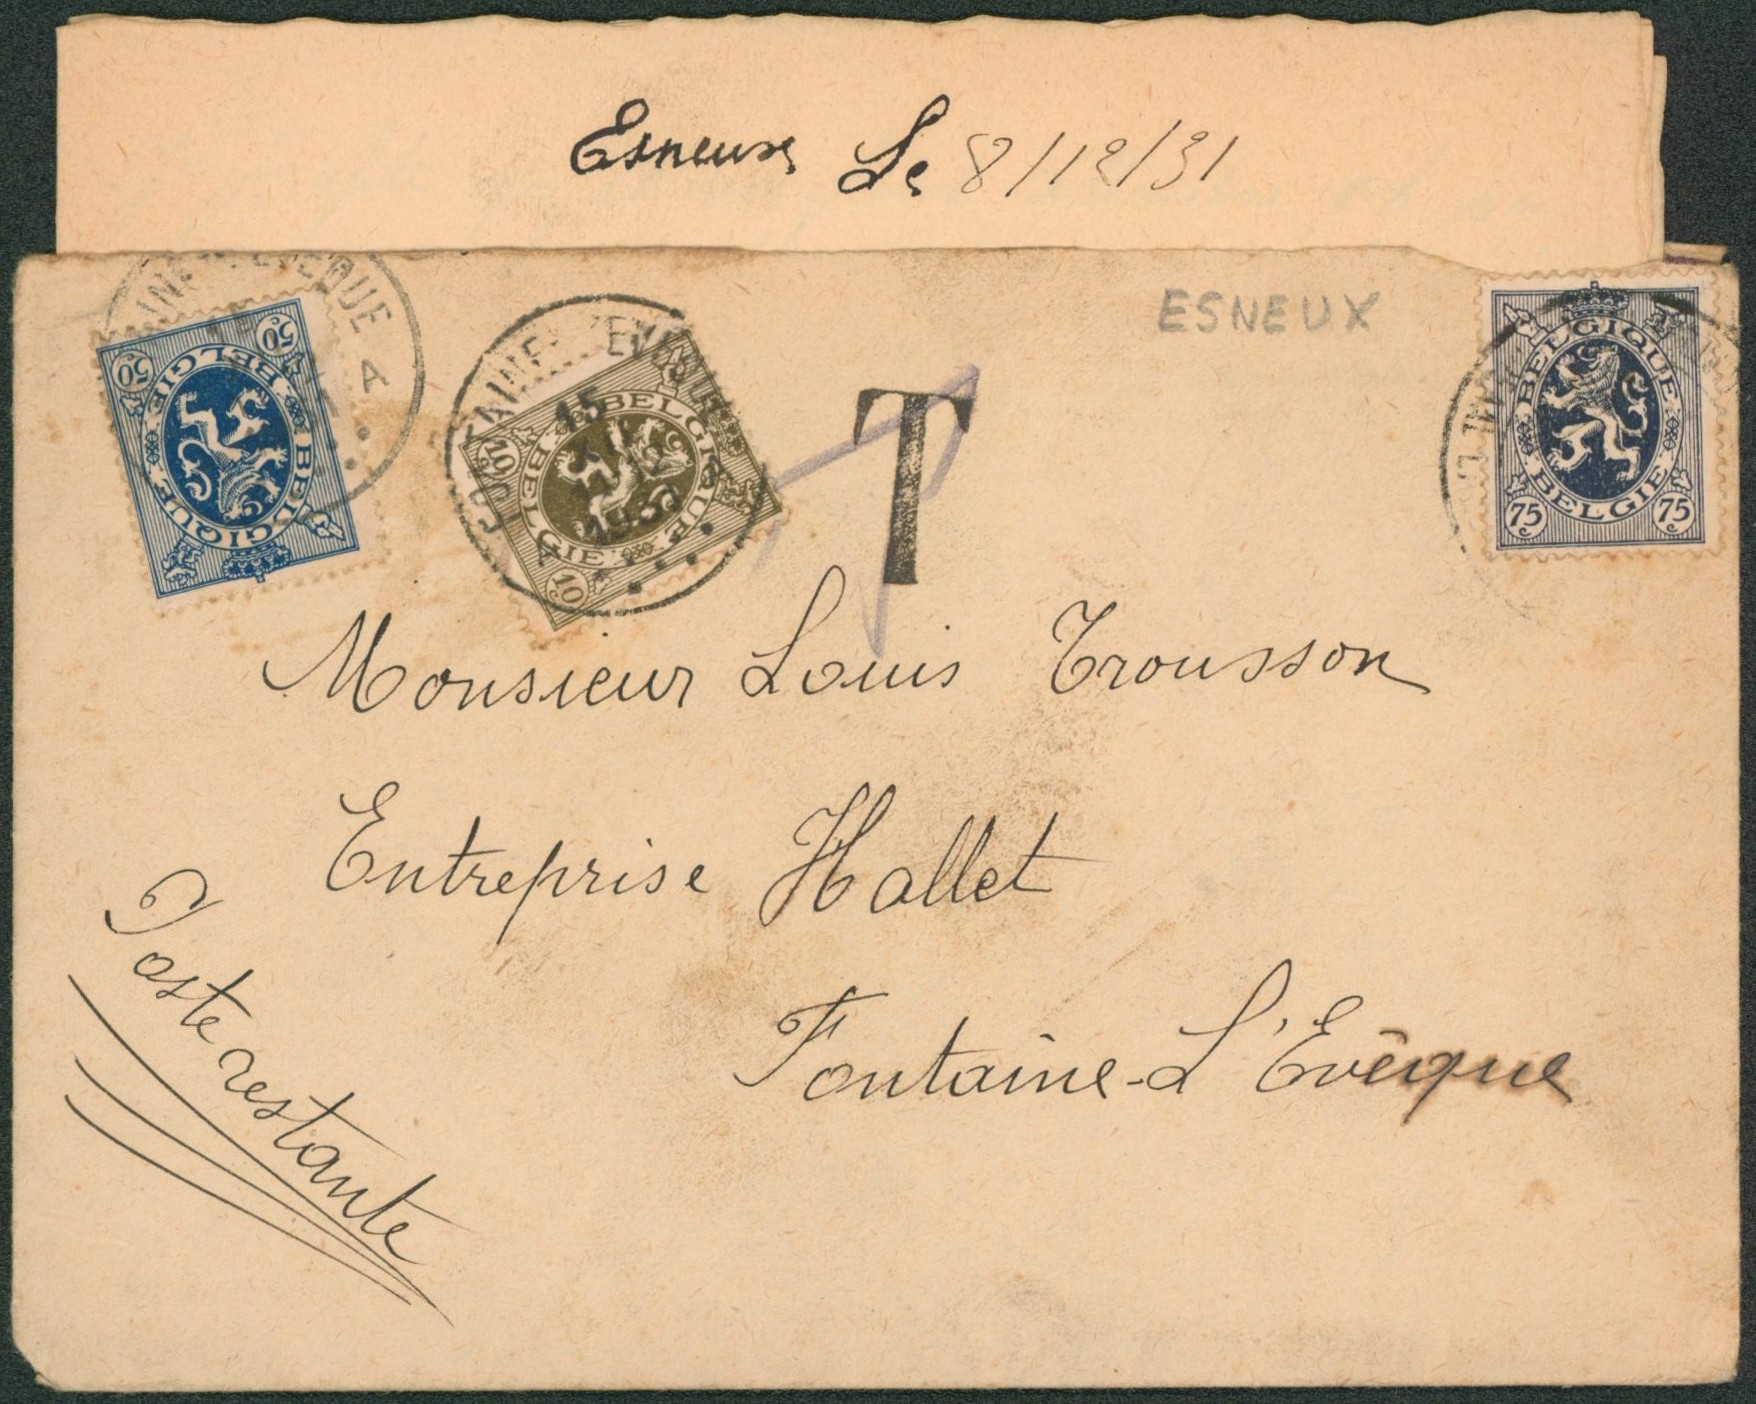 Esneux Le 8/12/31
ESNEUX
50 50
BELGIQUE BELGIE
A
15
1931
A
10 10
BELGIQUE BELGIE
T
BELGIQUE
BELGIE
75 75
Monsieur Louis Trousson
Entreprise Hallet
Fontaine-L'Evêque
Poste restante